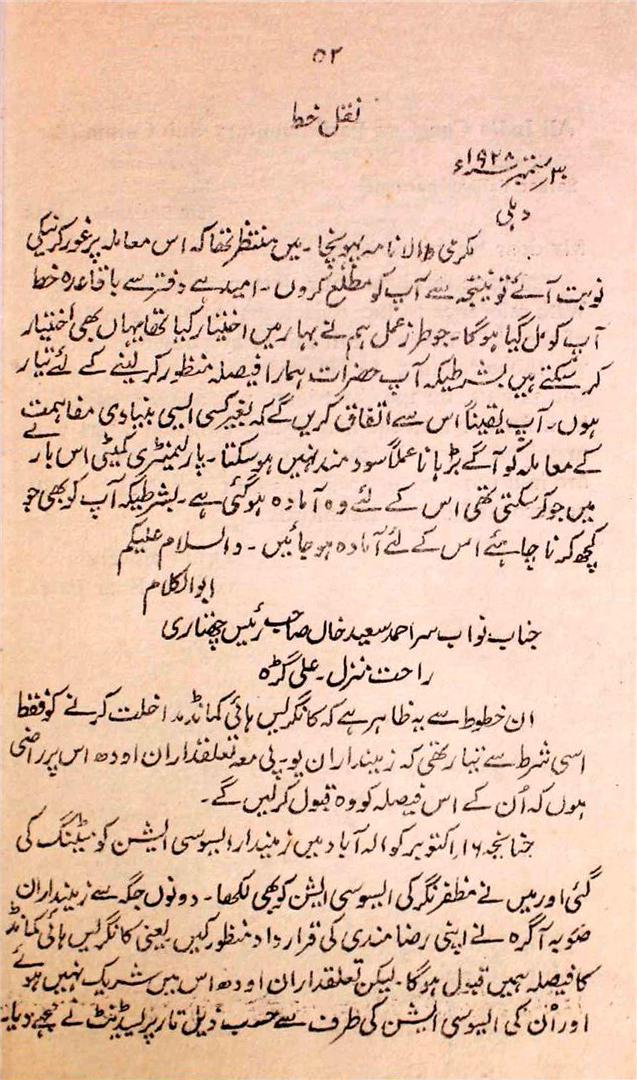 ۵۲
نقل خط
۳۰ ستمبر ۱۹۳۸ء
دہلی
مکرمی والا نامہ پہونچا۔ میں منتظر تھا کہ اس معاملہ پر غور کرنیکی
نوبت آئے تو نتیجہ سے آپ کو مطلع کروں۔ امید ہے دفتر سے باقاعدہ خط
آپ کو مل گیا ہوگا۔ جو طرز عمل ہم نے بہار میں اختیار کیا تھا یہاں بھی اختیار
کر سکتے ہیں بشرطیکہ آپ حضرات ہمارا فیصلہ منظور کر لینے کے لئے تیار
ہوں۔ آپ یقیناً اس سے اتفاق کریں گے کہ بغیر کسی ایسی بنیادی مفاہمت
کے معاملہ کو آگے بڑہانا عملاً سودمند نہیں ہو سکتا۔ پارلیمنٹری کمیٹی اس بارے
میں جو کر سکتی تھی اس کے لئے وہ آمادہ ہو گئی ہے۔ بشرطیکہ آپ کو بھی جو
کچھ کرنا چاہئے اس کے لئے آمادہ ہو جائیں۔ والسلام علیکم
ابوالکلام
جناب نواب سر احمد سعید خاں صاحب رئیس چھتاری
راحت منزل۔ علی گڑہ
ان خطوط سے یہ ظاہر ہے کہ کانگریس ہائی کمانڈ مداخلت کرنے کو فقط
اسی شرط سے تیار تھی کہ زمینداران یو۔پی معہ تعلقداران اودھ اس پر راضی
ہوں کہ اُن کے اس فیصلہ کو وہ قبول کرلیں گے۔
چنانچہ ۱۶ اکتوبر کو الہ آباد میں زمیندار ایسوسی ایشن کو میٹنگ کی
گئی اور میں نے مظفر نگر کی ایسوسی ایشن کو بھی لکھا۔ دونوں جگہ سے زمینداران
صوبہ آگرہ نے اپنی رضامندی کی قرارداد منظور کیں یعنی کانگریس ہائی کمانڈ
کا فیصلہ ہمیں قبول ہوگا۔ لیکن تعلقداران اودھ اس میں شریک نہیں ہوئے
اور اُن کی ایسوسی ایشن کی طرف سے حسب ذیل تار پریسیڈنٹ نے مجھے دیا۔